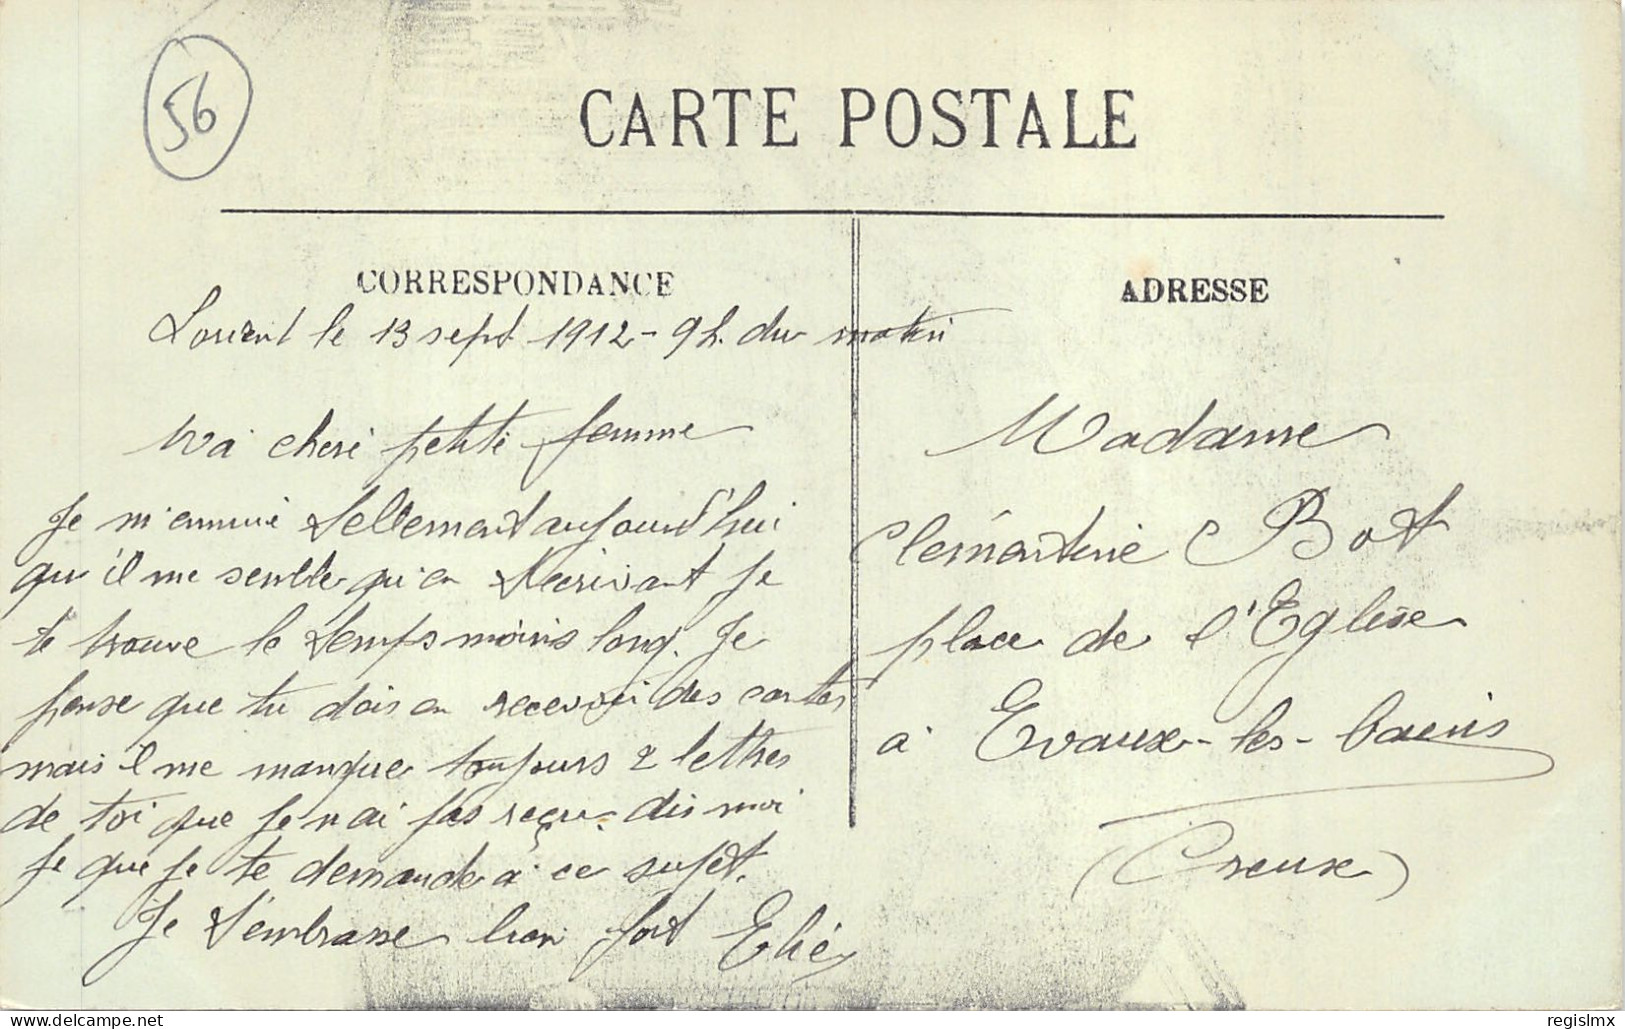 56
CARTE POSTALE
CORRESPONDANCE
Lorient le 13 sept 1912 - 9h. du matin
Ma cheré petite femme
Je m'ennuie tellement aujourd'hui
qu'il me semble qu'en t'écrivant je
te trouve le temps moins long. Je
pense que tu dois en recevoir des cartes
mais il me manque toujours 2 lettres
de toi que je n'ai pas reçu. dis moi
je que je te demande à ce sujet.
Je t'embrasse bien fort Elie
ADRESSE
Madame
Clémentine Bot
place de l'Eglise
à Evaux-les-bains
(Creuse)
delcampe.net
regislmx